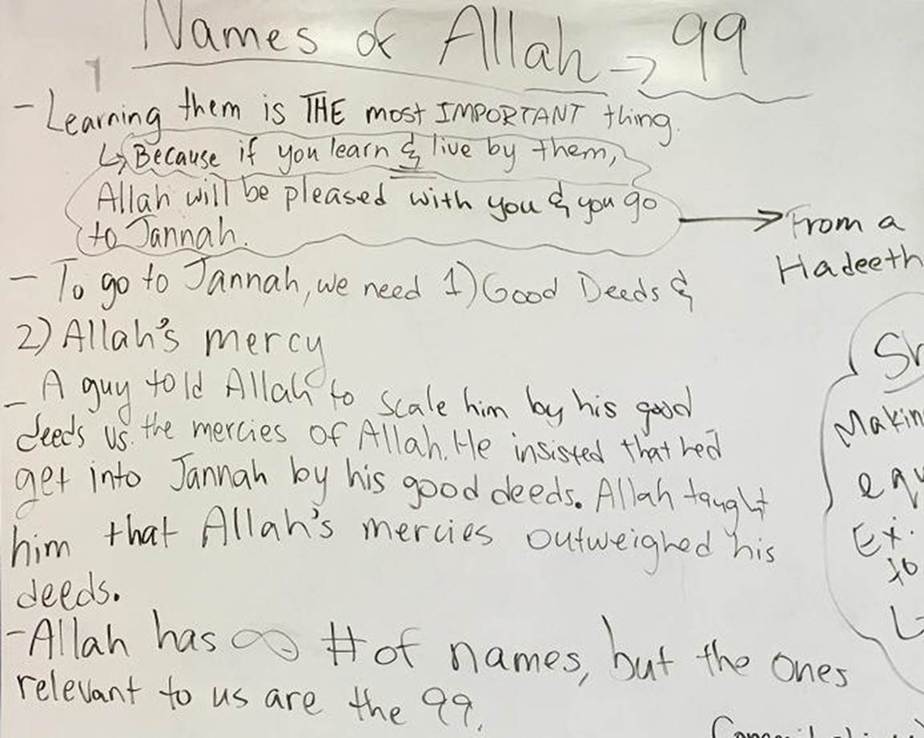 Names of Allah → 99
- Learning them is THE most IMPORTANT thing.
↳ Because if you learn & live by them,
Allah will be pleased with you & you go
to Jannah.
→ From a
Hadeeth
- To go to Jannah, we need 1) Good Deeds &
2) Allah's mercy
- A guy told Allah to scale him by his good
deeds vs. the mercies of Allah. He insisted that he'd
get into Jannah by his good deeds. Allah taught
him that Allah's mercies outweighed his
deeds.
- Allah has ∞ # of names, but the ones
relevant to us are the 99.
Ex.
to